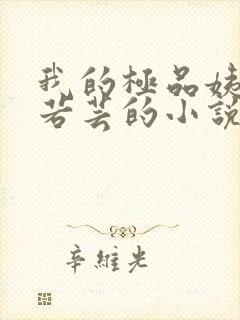 我的極品姨
若芸的小說
辛維光